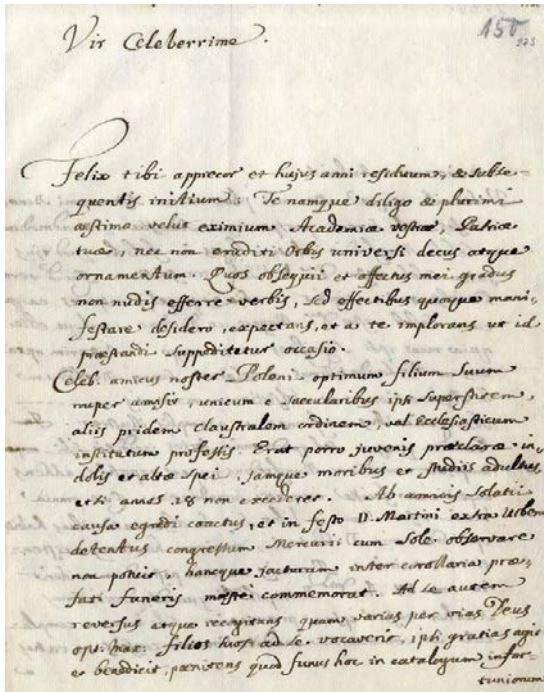 150
275
Vir Celeberrime.
Felix tibi apprecor et hujus anni residuum, & subse-
quentis initium: Te namque diligo & plurimi
æstimo velut eximium Academiæ vestræ, Patriæ
tuæ, nec non eruditi Orbis universi decus atque
ornamentum. Quos obsequii et affectus mei gradus
non nudis efferre verbis, sed effectibus quoque mani-
festare desidero, expectans, et a te implorans ut id
præstandi suppeditetur occasio.
Celeb. amicus noster Poloni optimum filium suum
nuper amisit, unicum e sæcularibus ipsi superstitem,
aliis pridem claustralem ordinem, vel Ecclesiasticum
institutum professis. Erat porro juvenis præclaræ in-
dolis et altæ spei, jamque moribus et studiis adultus,
etsi annos 18 non excederet. Ab amicis solatii
causa egredi coactus, et in festo D. Martini extra Urbem
detentus congressum Mercurii cum Sole observare
non potuit, hancque jacturam inter corollaria præ-
fati funeris mœste commemorat. Ad se autem
reversus atque recogitans quam varias per vias Deus
opt. max. filios suos ad se vocaverit, ipsi gratias agit
et benedicit, pœnitens quod funus hoc in catalogum infor-
tuniorum